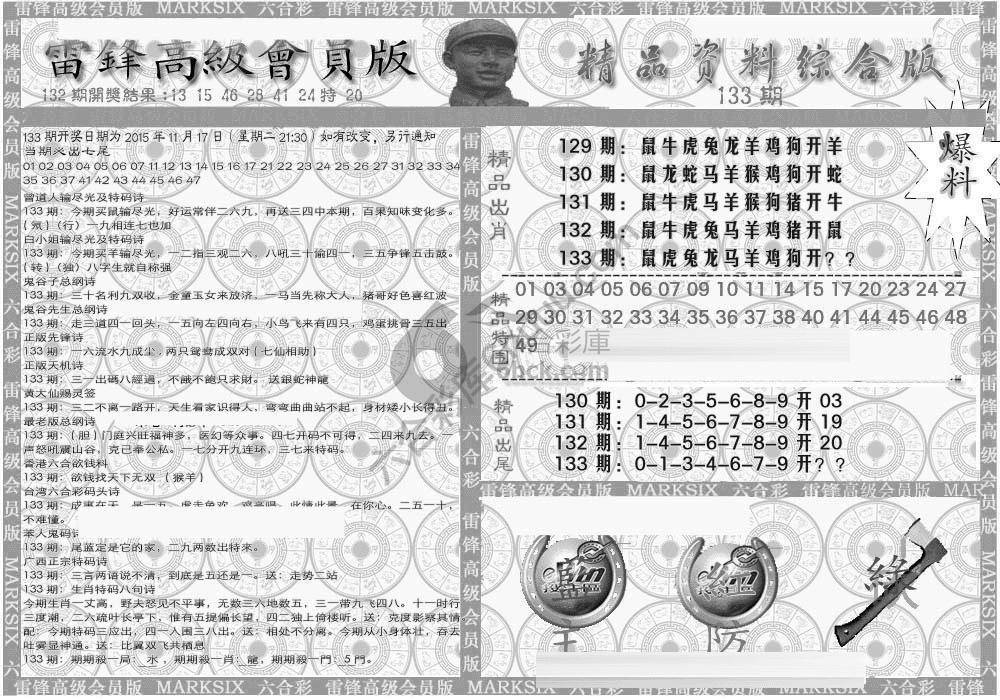 雷锋高级会员版 MARKSIX 六合彩 雷锋高级会员版 MARKSIX 六合彩 雷锋高级会员版 MARKSIX 六合彩
雷鋒高級會員版
132 期開獎結果:13 15 46 28 41 24 特 20
精品资料综合版
133 期
爆料
133 期开奖日期为 2015 年 11 月 17 日 ( 星期二 21:30 ) 如有改变，另行通知
当期必出七尾
01 02 03 04 05 06 07 11 12 13 14 15 16 17 21 22 23 24 25 26 27 31 32 33 34
35 36 37 41 42 43 44 45 46 47
曾道人输尽光及特码诗
133 期：今期买鼠输尽光，好运常伴二六九，再送三四中本期，百果知味变化多。
(氖)（行）一九相连七也加
白小姐输尽光及特码诗
133 期：今期买羊输尽光，一二指三观二六，八吼三十偷四一，三五争锋五击鼓。
(转)（独）八字生就自称强
鬼谷子总纲诗
133 期：三十名利九双收，金童玉女来放济，一马当先称大人，猪哥好色喜红波
鬼谷先生总纲诗
133 期：走三道四一回头，一五向左四向右，小鸟飞来有四只，鸡蛋挑骨三五出
正版先锋诗
133 期：一六流水九成尘，两只鸳鸯成双对（七仙相助）
正版天机诗
133 期：三一出碼八經過，不餓不飽只求財。送銀蛇神龍
黄大仙赐灵签
133 期：三二不离一路开，天生看家识得人，弯弯曲曲站不起，身材矮小长得丑。
最老版总纲诗
133 期：(胆)门庭兴旺福神多，医幻等众事。四七开码不可得，二四来九去。一
声怒吼震山谷，克己奉公私。一七分开九连环，三七来特码。
香港六合欲钱料
133 期：欲钱找天下无双（猴羊）
台湾六合彩码头诗
在你心。二五一十，
不难懂。
本人鬼码诗
133 期：尾蓝定是它的家，二九两数出特来。
广西正宗特码诗
133 期：三言两语说不清，到底是五还是一。送：走势二站
133 期：生肖特码八句诗
今期生肖一丈高，野夫怒见不平事，无数三六地数五，三一带九飞四八。十一时行
三度潮，二六疏叶长亭下，惟有五提偏长望，四二独上倚楼听。送：克度影察其情
配：今期特码三应出，四一入围三八出。送：相处不分离。今期从小身体壮，吞去
吐雾显神通。送：比翼双飞共栖息
133 期：期期殺一局：水，期期殺一肖：龍，期期殺一門：5 門。
精品出肖
129 期：鼠牛虎兔龙羊鸡狗开羊
130 期：鼠龙蛇马羊猴鸡狗开蛇
131 期：鼠牛虎马羊猴狗猪开牛
132 期：鼠牛虎兔马羊鸡猪开鼠
133 期：鼠虎兔龙马羊鸡狗开？？
精品特围
01 03 04 05 06 07 09 11 12 14 17 20 23 24 27
29 30 31 32 33 34 35 36 37 38 40 41 44 45 46 48
49
精品出尾
130 期：0-2-3-5-6-8-9 开 03
131 期：1-4-5-6-7-8-9 开 19
132 期：1-4-5-6-7-8-9 开 20
133 期：0-1-3-4-6-7-9 开？？
雷锋高级会员版 MARKSIX 六合彩 雷锋高级会员版 MAR
主
防
綠
雷锋高级会员版 MARKSIX 六合彩 雷锋高级会员版 MARKSIX 六合彩 雷锋高级会员版 MARKSIX 六合彩